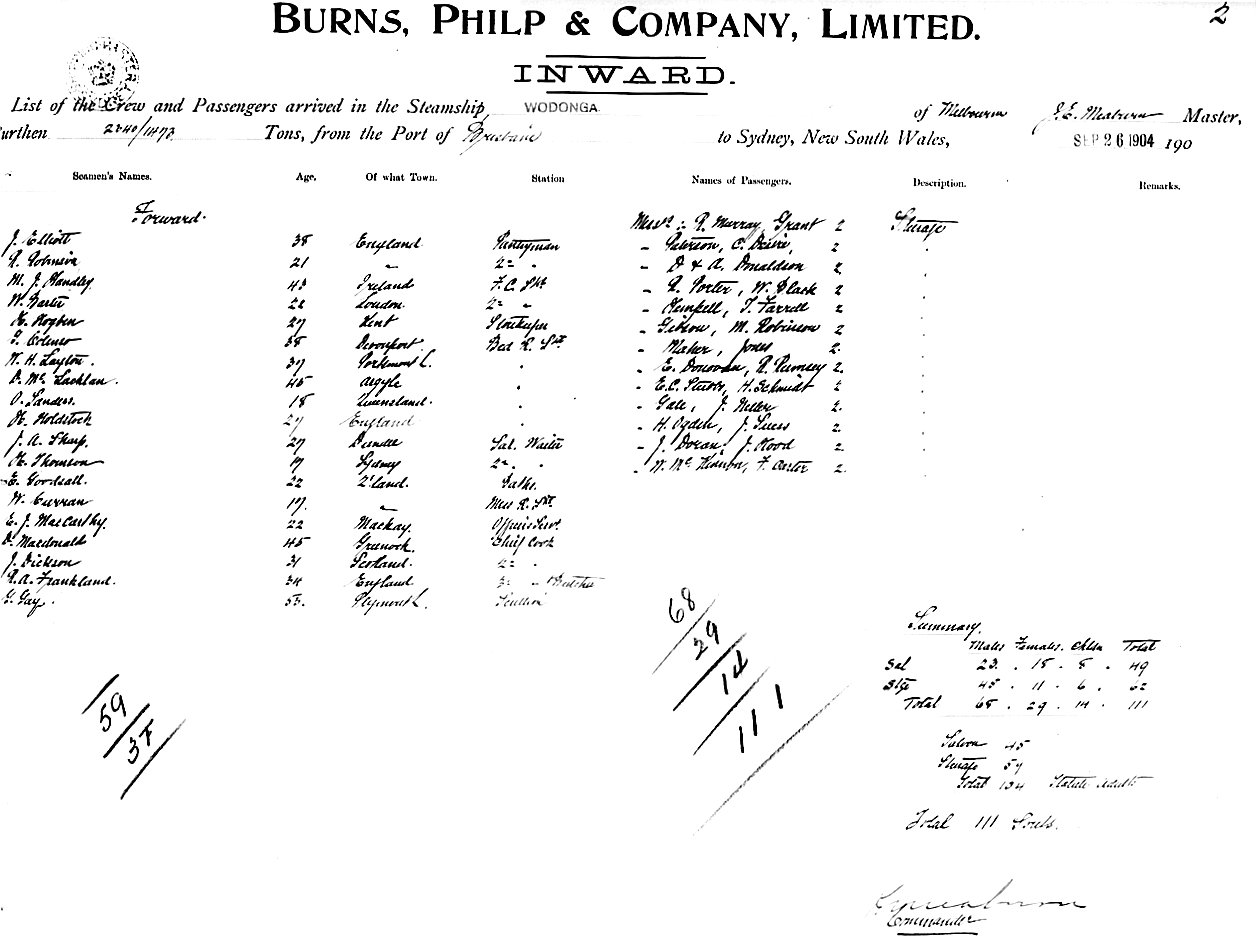 BURNS, PHILP & COMPANY, LIMITED. 2
INWARD.
List of the Crew and Passengers arrived in the Steamship, WODONGA of Melbourne J. E. Meaburn Master,
Burthen 2340/1473 Tons, from the Port of Brisbane to Sydney, New South Wales, SEP 26 1904 190
Seamen's Names. Age, Of what Town. Station Names of Passengers. Description. Remarks.
Forward. Messrs: R. Murray, Grant 2 Steerage
J. Elliott 38 England Pantryman - Paterson, C. 2
R. Robinson 21 " 2nd " - D & A. Donaldson 2
M. J. Handley 43 Ireland F.C. Std - R. Porter, W. Black 2
W. Carter 22 London 2nd " - Kempell, T. Farrell 2
H. Hogben 27 Kent Storekeeper - Gibson, M. Robinson 2
38 Devonport. Bed R. Std - Maher, Jones 2.
W. H. Layton. 37 Portsmouth. " - E. Donovan, R. Rumsey 2.
D. McLachlan. 45 Argyle " - E.C. H. Schmidt 2
O. Sanders. 18 Queensland. " - Gale, J. 2.
H. Holdstock 27 England " - H. Ogden, J. 2.
J. A. Sharp. 27 Dundee Sal. Waiter - J. Doran, J. Hood 2.
H. Thomson 19 Sydney 2nd. " - W. McKinnon, F. Carter 2.
E. Goodsall. 22 Z'land. Baths.
W. Curran 17. " Mess R. Std
E. J. MacCarthy. 22 Mackay. Officers Servt
D. Macdonald 45 Greenock. Chief Cook
J. Dickson 31 Scotland. 2nd "
R. A. Frankland. 34 England 3rd " & Butcher
G. Gay. 53. Plymouth. Scullion
68
29
14
111
59
37
Summary.
Males Females. Chldn Total
Sal 23. 18. 8. 49
Stge 45. 11. 6. 62
Total 68. 29. 14. 111
Saloon 45
Steerage 59
Total 104 Statute Adults
Total 111 Souls.
J E Meaburn
Commander